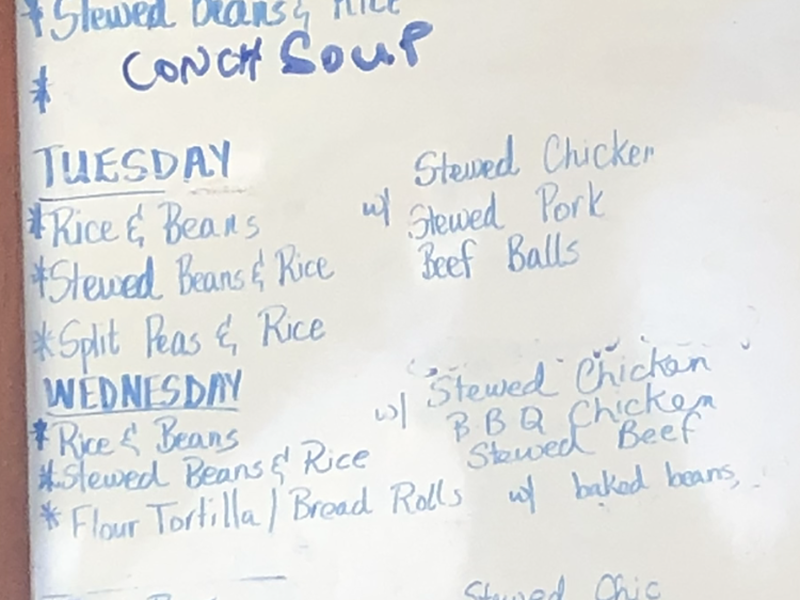 * Stewed Beans & Rice
* CONCH SOUP
TUESDAY
* Rice & Beans
* Stewed Beans & Rice
* Split Peas & Rice
w/ Stewed Chicken
Stewed Pork
Beef Balls
WEDNESDAY
* Rice & Beans
* Stewed Beans & Rice
w/ Stewed Chicken
BBQ Chicken
Stewed Beef
* Flour Tortilla / Bread Rolls w/ baked beans,
Stewed Chic